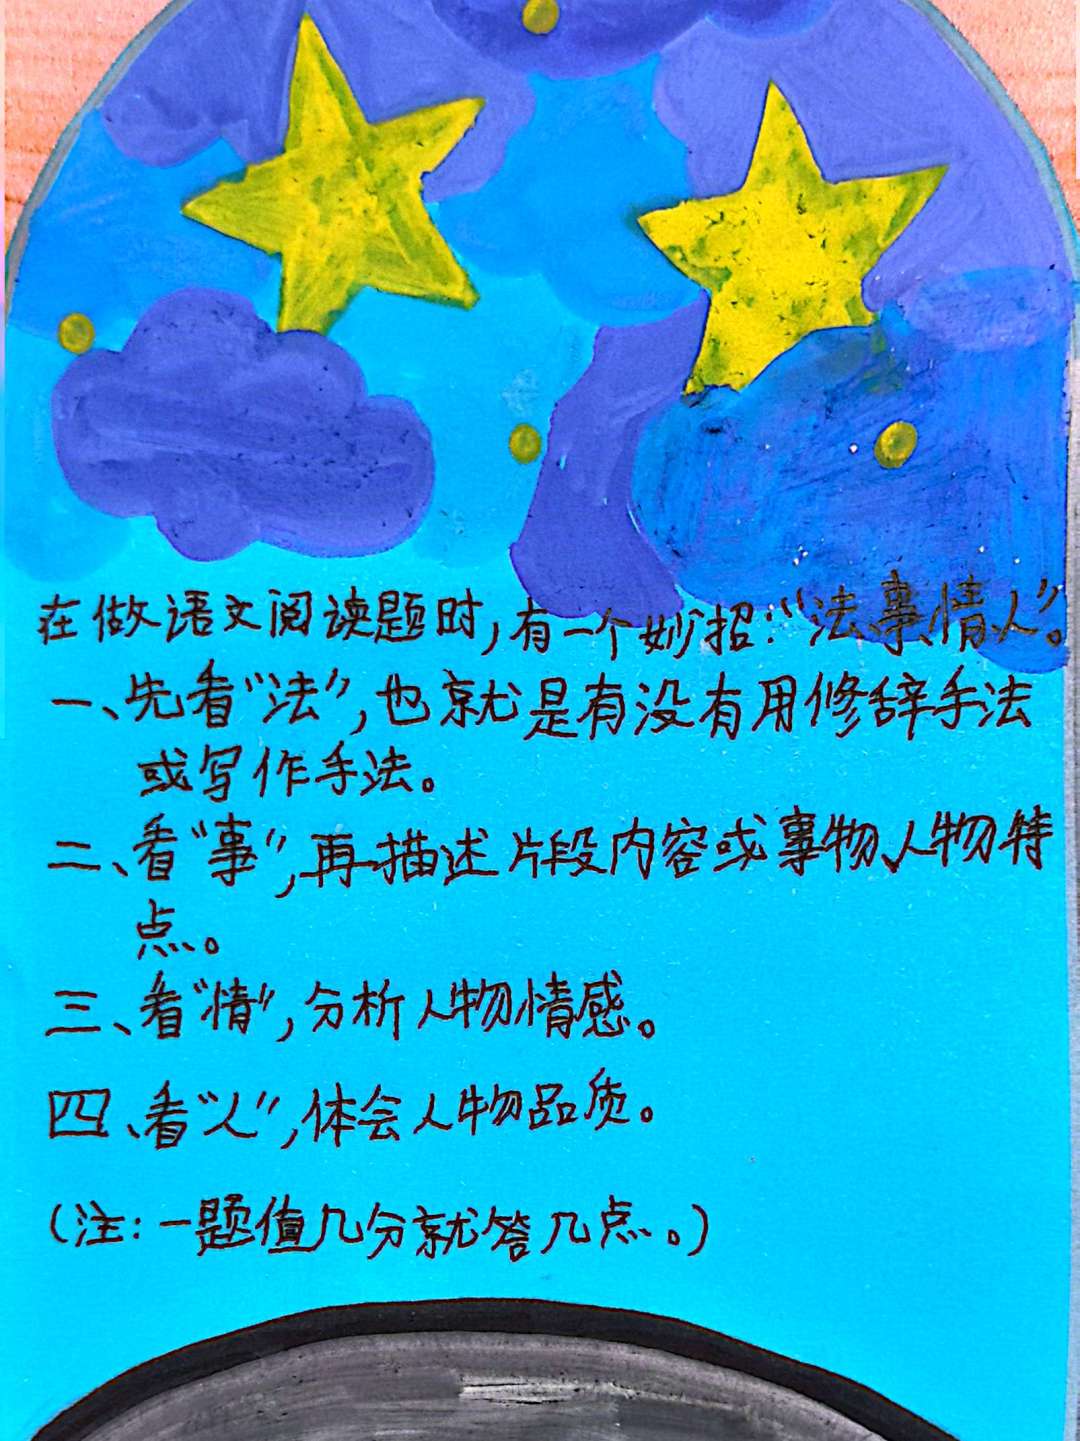 在做语文阅读题时,有一个妙招:“法、事、情、人”。
一、先看“法”,也就是有没有用修辞手法
或写作手法。
二、看“事”,再描述片段内容或事物、人物特
点。
三、看“情”,分析人物情感。
四、看“人”,体会人物品质。
(注:一题值几分就答几点。)